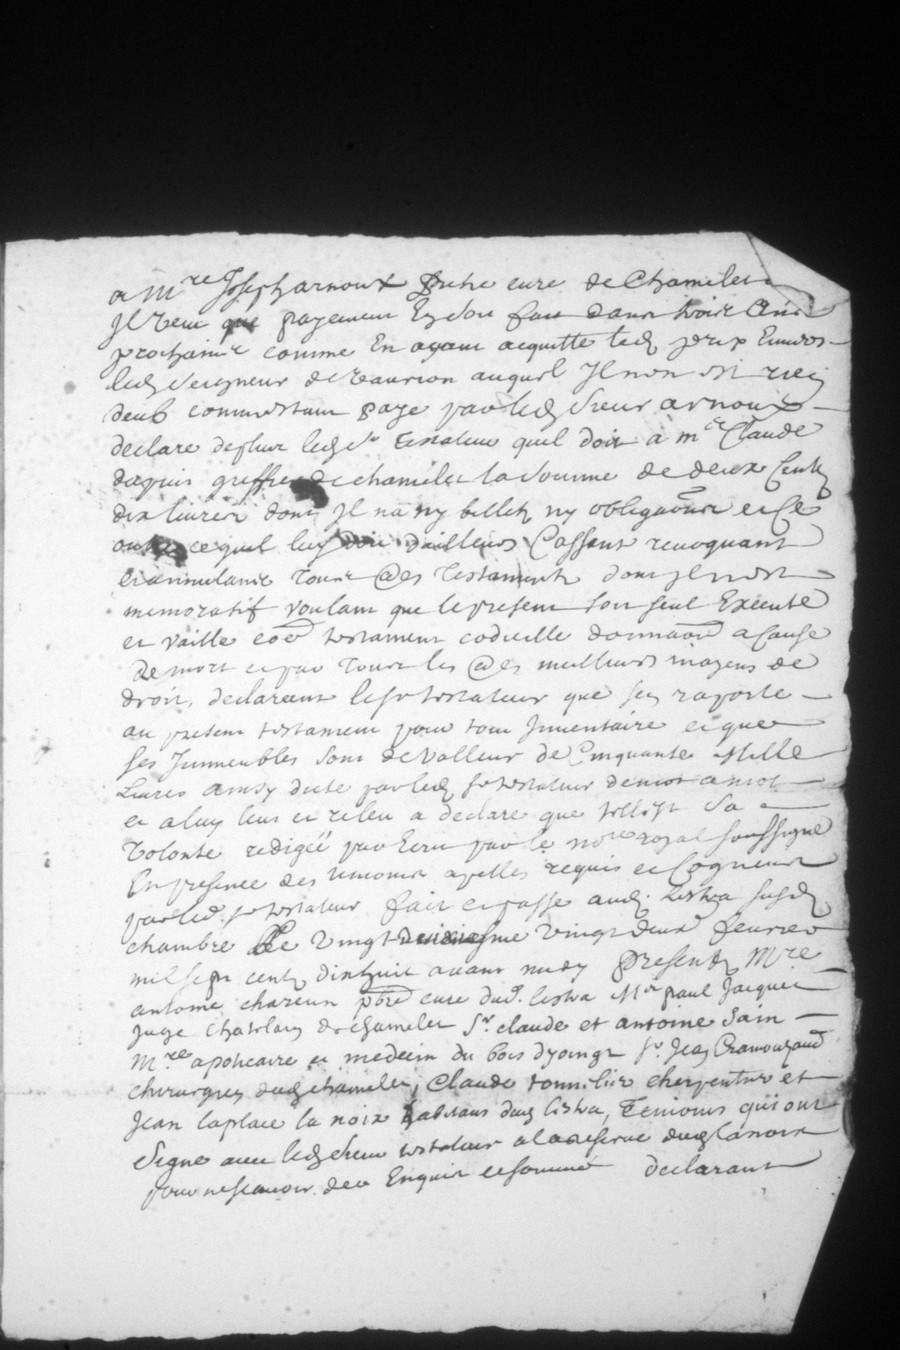 a Mre Joseph arnoux prebtre cure de Chamelet
Jl veut que payement En soit fait dans trois Ans
prochains comme En ayant acquitte led prix Envers
led seigneur de vaurion auquel Jl n'en est rien
deub comm estant paye par led sieur arnoux
declare de plus led sr testateur quil doit a me Claude
dupuis greffier de chamelet la somme de deux Cents
dix livres dont Jl na ny billets ny obligaons et Ce
outre ce quil luy doit dailleurs Cassant revoquant
et annulant tous @es testaments dont Jl nest
memoratif voulant que le present soit seul Execute
et vaille coe testament codicille donnaon a Cause
de mort et par tous les @es meilleurs moyens de
droit, declarant le sr testateur que sen raporte
au present testament pour tout Jnventaire et que
ses Jmmeubles sont de valleur de Cinquante Mille
Livres ainsy dicte par led sr testateur de mot a mot
et a luy leu et releu a declare que telle est sa
volonte redigéé par Ecrit par le nore royal soussigne
En presence des temoins apelles requis et Cogneus
par led. sr testateur fait et passe aud. Lestra susd
chambre Le vingt deuxiesme vingt deux fevrier
mil sept cents dixhuit avant midy presents Mre
antoine chareun pbre cure dud. lestra Mr paul Jacquet
Juge chatelain de chamelet sr. claude et antoine Sain
Mres apoticaire et medecin du bois dyoingt sr Jean
chirurgien dud chamelet, Claude tonnelier cherpentier et
Jean laplace la noix habitans dud lestra, Temoins qui ont
signe avec led sieur testateur a la reserve dud lanoix
pour ne scavoir de ce Enquis et sommé declarant